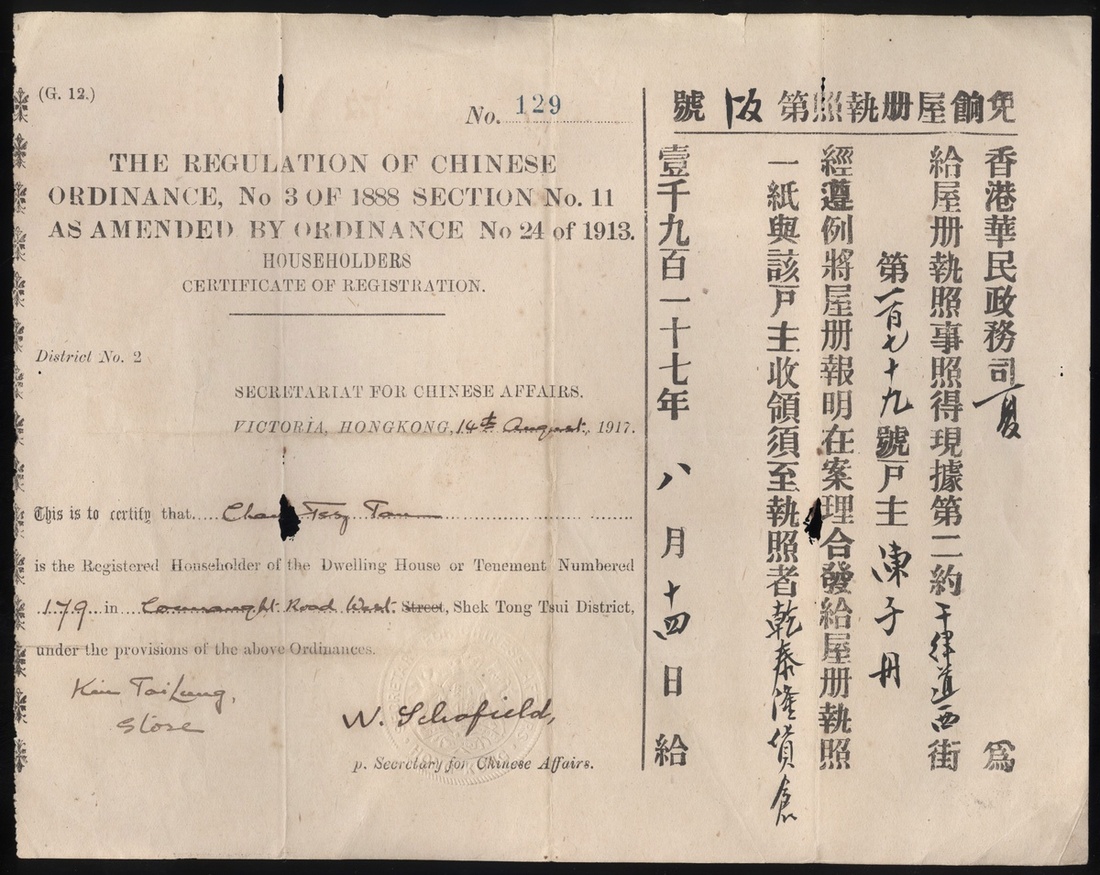 (G. 12.)
No. 129
THE REGULATION OF CHINESE
ORDINANCE, No 3 OF 1888 SECTION No. 11
AS AMENDED BY ORDINANCE No 24 of 1913.
HOUSEHOLDERS
CERTIFICATE OF REGISTRATION.
District No. 2
SECRETARIAT FOR CHINESE AFFAIRS.
VICTORIA, HONGKONG, 14th August, 1917.
This is to certify that Chan Tsz Tan
is the Registered Householder of the Dwelling House or Tenement Numbered
179 in Connaught Road West Street, Shek Tong Tsui District,
under the provisions of the above Ordinances.
Kin Tai Lung,
Store
W. Schofield,
p. Secretary for Chinese Affairs.
免餉屋册執照第 號
香港華民政務司夏 為
給屋册執照事照得現據第二約干律道西街
第一百七十九號戸主陳子丹
經遵例將屋册報明在案理合發給屋册執照
一紙與該戸主收領須至執照者乾泰隆貨倉
壹千九百一十七年 八 月 十四 日 給